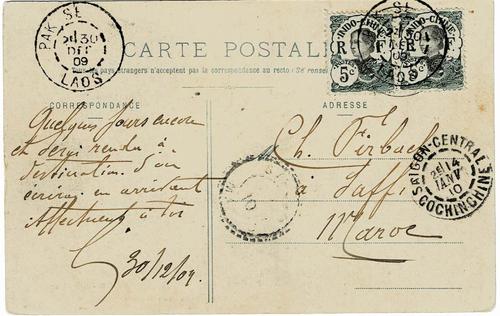 PAK SE
30
DEC
09
LAOS
CARTE POSTALE
Tous les pays étrangers n'acceptent pas la correspondance au recto (Se renseigner
INDO-CHINE
R F
5c
INDO-CHINE
R F
5c
CORRESPONDANCE
ADRESSE
Quelques jours encore
et serai rendu à
destination. T'en
écrirai en arrivant
Affectueux à toi
30/12/09.
Ch. Firbach
à Saffi
Maroc
SAIGON-CENTRAL
14
JANV
10
COCHINCHINE